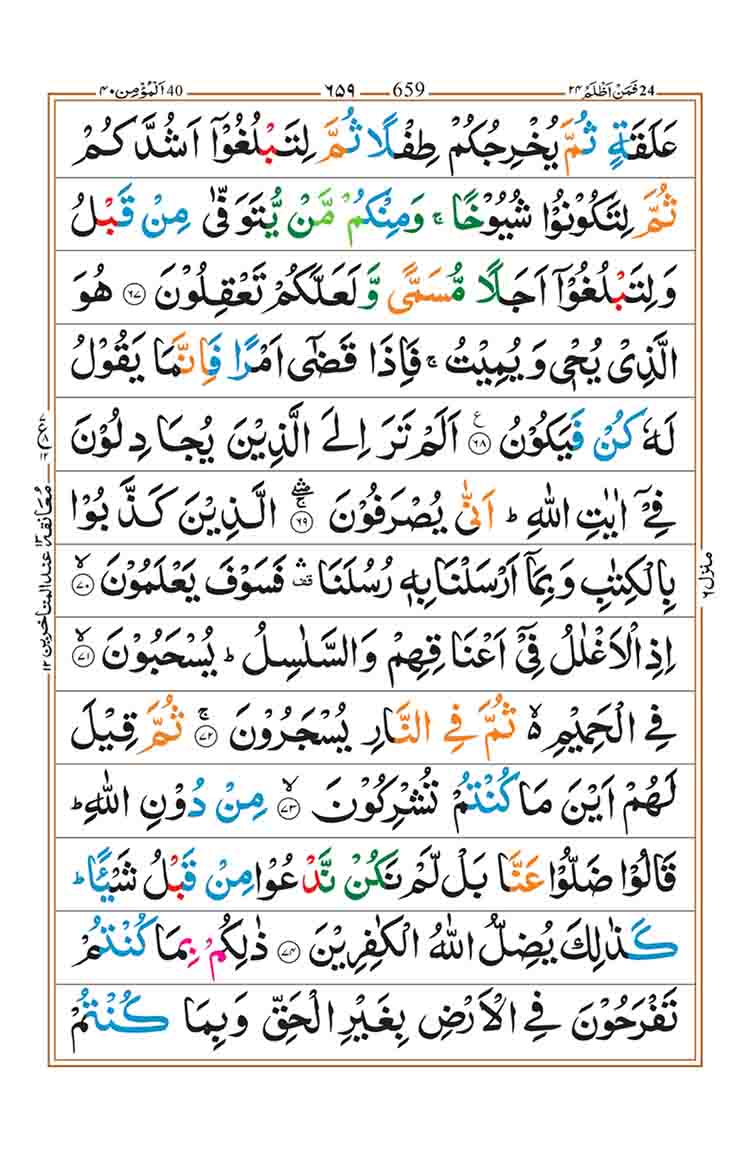 ٤٠ اَلْمُؤْمِن 40 ٦٥٩ 659 فَمَنْ اَظْلَمُ ٢٤ 24
عَلَقَةٍ ثُمَّ يُخْرِجُكُمْ طِفْلًا ثُمَّ لِتَبْلُغُوْۤا اَشُدَّكُمْ
ثُمَّ لِتَكُوْنُوْا شُيُوْخًا ۚ وَمِنْكُمْ مَّنْ يُّتَوَفّٰى مِنْ قَبْلُ
وَلِتَبْلُغُوْۤا اَجَلًا مُّسَمًّى وَّلَعَلَّكُمْ تَعْقِلُوْنَ ﴿٦٧﴾ هُوَ
الَّذِىْ يُحْىٖ وَيُمِيْتُ ۚ فَاِذَا قَضٰٓى اَمْرًا فَاِنَّمَا يَقُوْلُ
لَهٗ كُنْ فَيَكُوْنُ ﴿٦٨﴾ ع اَلَمْ تَرَ اِلَى الَّذِيْنَ يُجَادِلُوْنَ
فِىْۤ اٰيٰتِ اللّٰهِ ؕ اَنّٰى يُصْرَفُوْنَ ﴿٦٩﴾ۛۚ الَّذِيْنَ كَذَّبُوْا
بِالْكِتٰبِ وَبِمَاۤ اَرْسَلْنَا بِهٖ رُسُلَنَا ۛ قف فَسَوْفَ يَعْلَمُوْنَ ﴿٧٠﴾ۙ
اِذِ الْاَغْلٰلُ فِىْۤ اَعْنَاقِهِمْ وَالسَّلٰسِلُ ؕ يُسْحَبُوْنَ ﴿٧١﴾ۙ
فِى الْحَمِيْمِ ۙ ثُمَّ فِى النَّارِ يُسْجَرُوْنَ ﴿٧٢﴾ۚ ثُمَّ قِيْلَ
لَهُمْ اَيْنَ مَا كُنْتُمْ تُشْرِكُوْنَ ﴿٧٣﴾ۙ مِنْ دُوْنِ اللّٰهِ ؕ
قَالُوْا ضَلُّوْا عَنَّا بَلْ لَّمْ نَكُنْ نَّدْعُوْا مِنْ قَبْلُ شَيْئًا ؕ
كَذٰلِكَ يُضِلُّ اللّٰهُ الْكٰفِرِيْنَ ﴿٧٤﴾ ذٰلِكُمْ بِمَا كُنْتُمْ
تَفْرَحُوْنَ فِى الْاَرْضِ بِغَيْرِ الْحَقِّ وَبِمَا كُنْتُمْ
معانقة ١٣ عند المتاخرين ١٢
منزل ٦